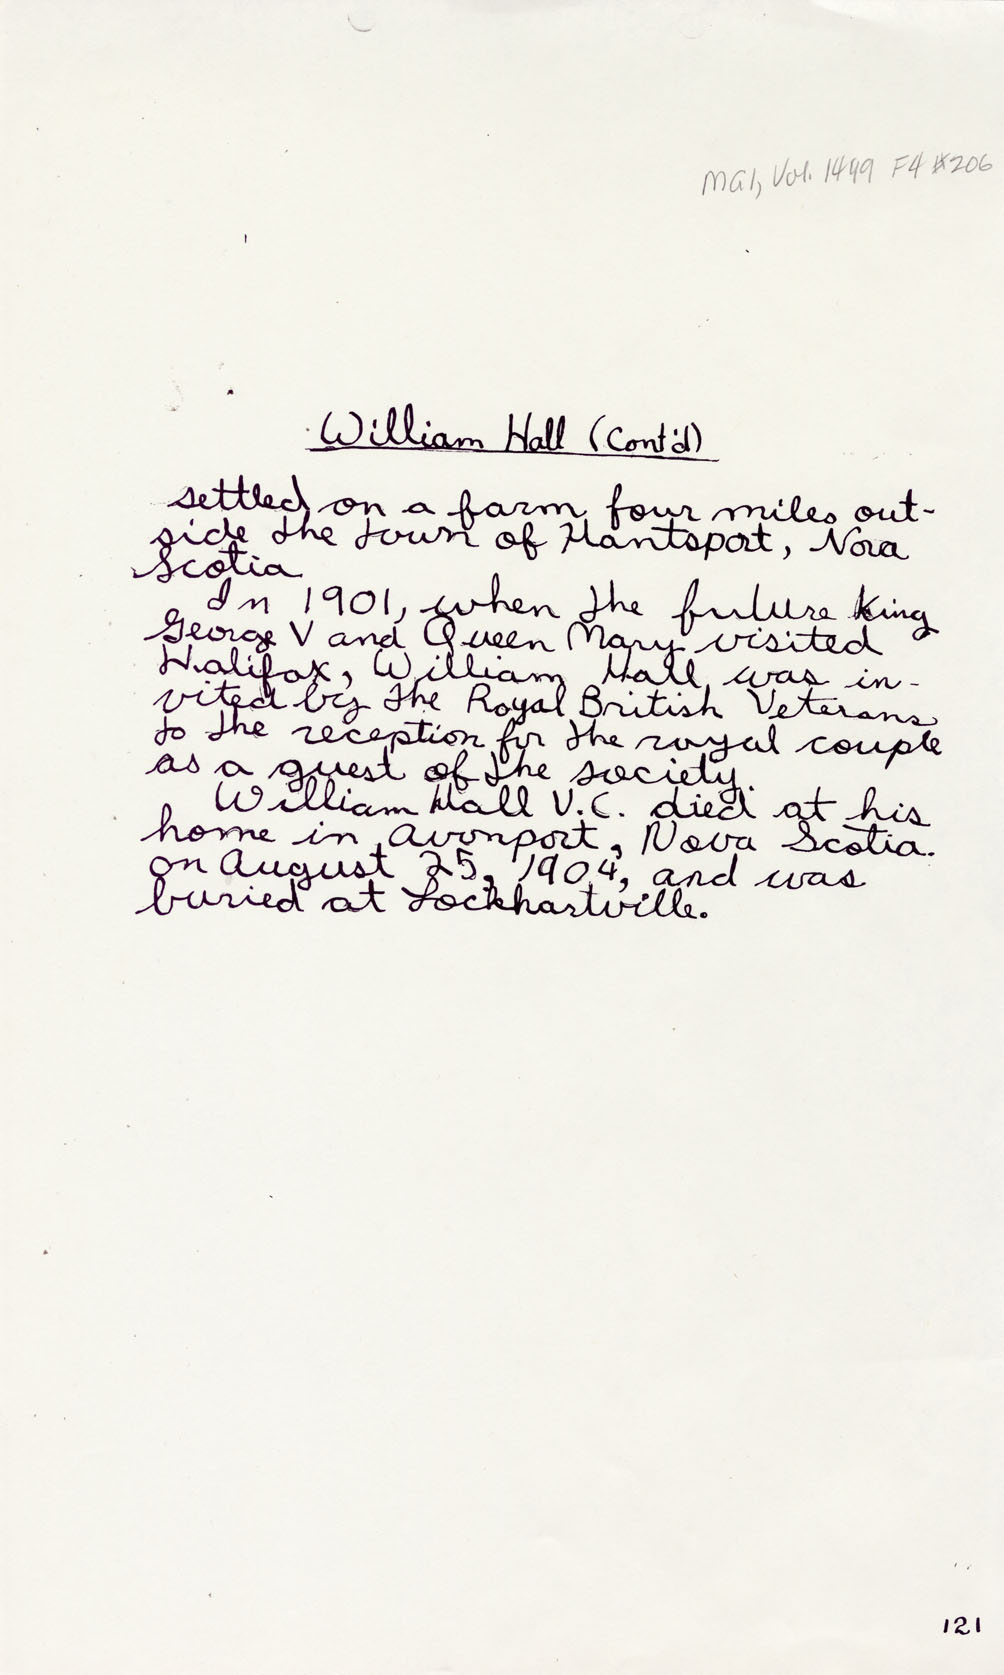 MG1, Vol. 1499 F4 #206
William Hall (Cont'd)
settled on a farm four miles out-
side the town of Hantsport, Nova
Scotia
In 1901, when the future King
George V and Queen Mary visited
Halifax, William Hall was in-
vited by the Royal British Veterans
to the reception for the royal couple
as a guest of the society.
William Hall V.C. died at his
home in Avonport, Nova Scotia.
on August 25, 1904, and was
buried at Lockhartville.
121